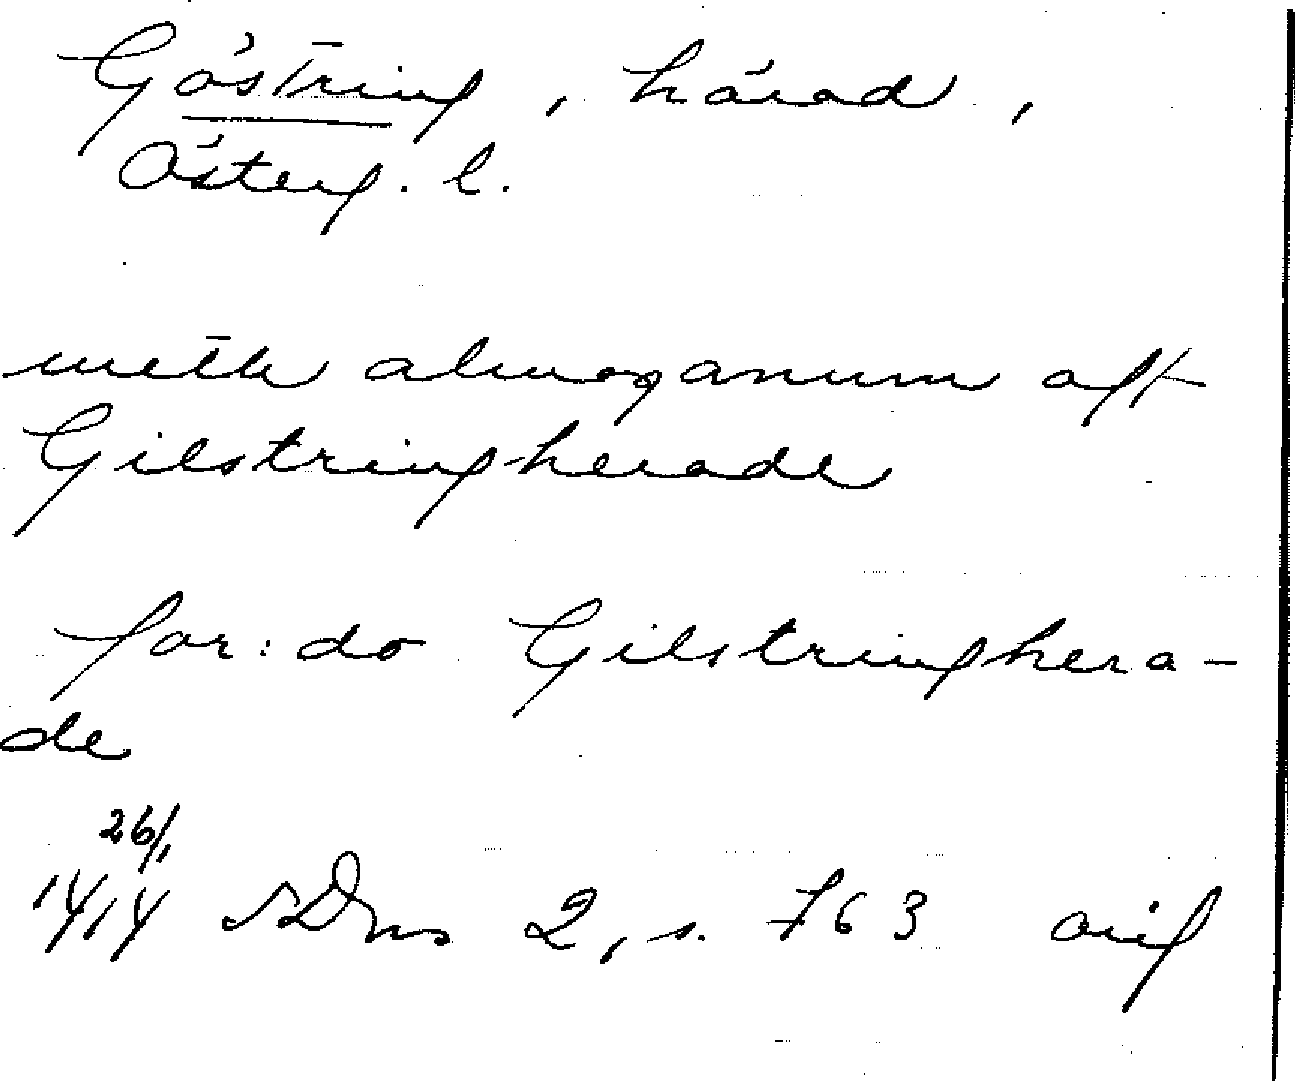 Göstring, härad,
Österg. l.
meth almoganum aff
Gilstringherade
for: do Gilstringhera-
de
26/1
1414 SDns 2, s. 763 orig